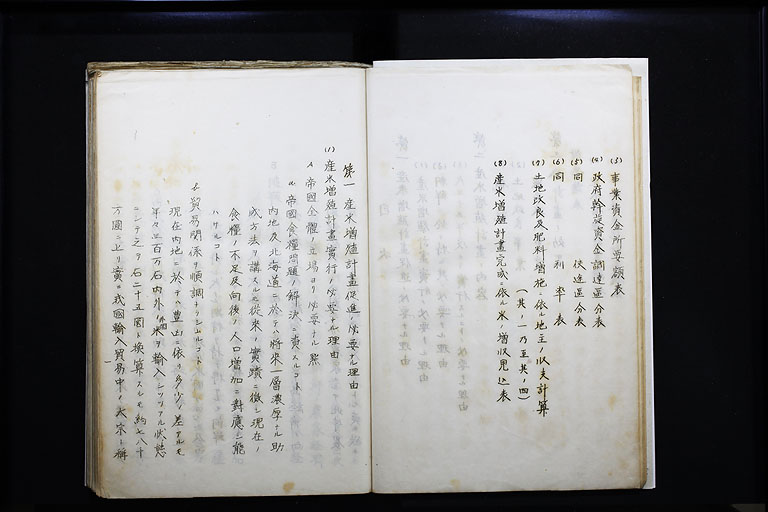 (3) 事業資金所要額表
(4) 政府斡旋資金調達區分表
(5) 同 仕途區分表
(6) 同 利率表
(7) 土地改良及肥料増施ニ依ル地主ノ收支計算
(其ノ一乃至其ノ四)
(8) 産米増殖計畫完成ニ依ル米ノ増收見込表
第一 産米増殖計畫促進ノ必要ナル理由
(1) 産米増殖計畫實行ノ必要ナル理由
A 帝國全體ノ立場ヨリ必要ナル點
a 帝國食糧問題ノ解決ニ資スルコト
内地及北海道ニ於テハ將來一層濃厚ナル助
成方法ヲ講スルモ從來ノ實蹟ニ徴シ現在ノ
食糧ノ不足及向後ノ人口増加ニ對應シ能
ハサルコト
b 貿易關係ヲ順調ナラシムルコト
現在内地ニ於テハ豊凶ニ依リ多少ノ差アルモ
年々三百万石内外ノ外國米ヲ輸入シツツアル狀態
ニシテ之ヲ石二十五圓ト換算スルモ約七八千
万圓ニ上リ實ニ我國輸入貿易中ノ大宗ト稱